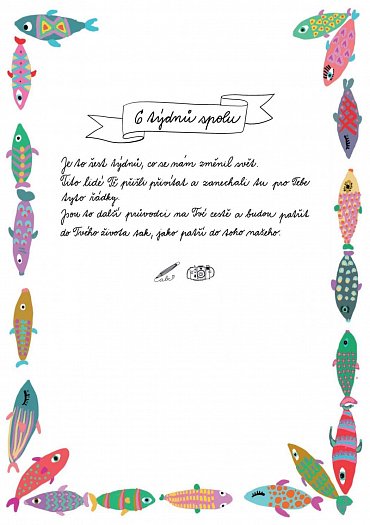 6 týdnů spolu
Je to šest týdnů, co se nám změnil svět.
Tito lidé Tě přišli přivítat a zanechali tu pro Tebe
tyto řádky.
Jsou to další průvodci na Tvé cestě a budou patřit
do Tvého života tak, jako patří do toho našeho.